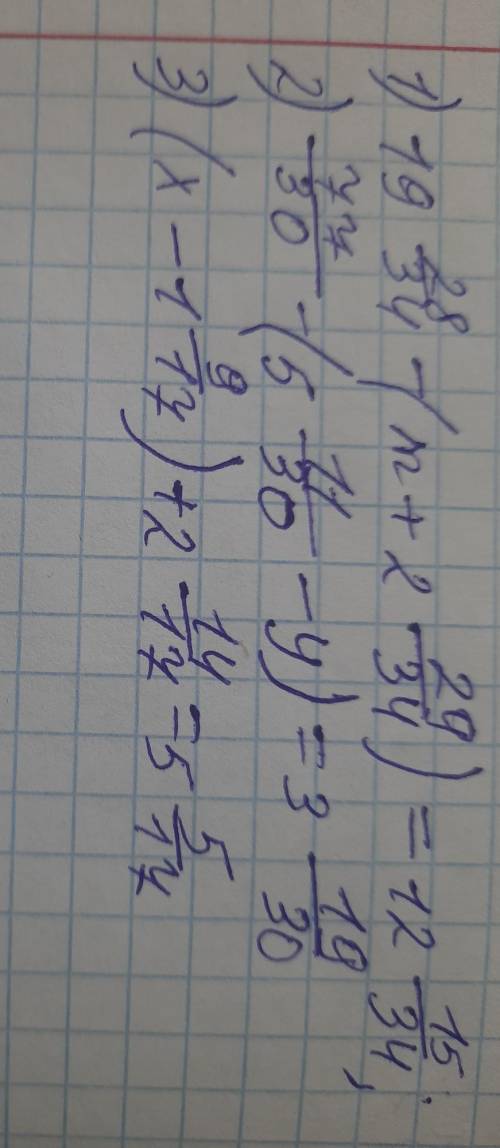 1) 19 28/34 - (n + 2 29/34) = 12 15/34;
2) 77/30 - (5 11/30 - y) = 3 19/30
3) (x - 1 9/17) + 2 14/17 = 5 5/17